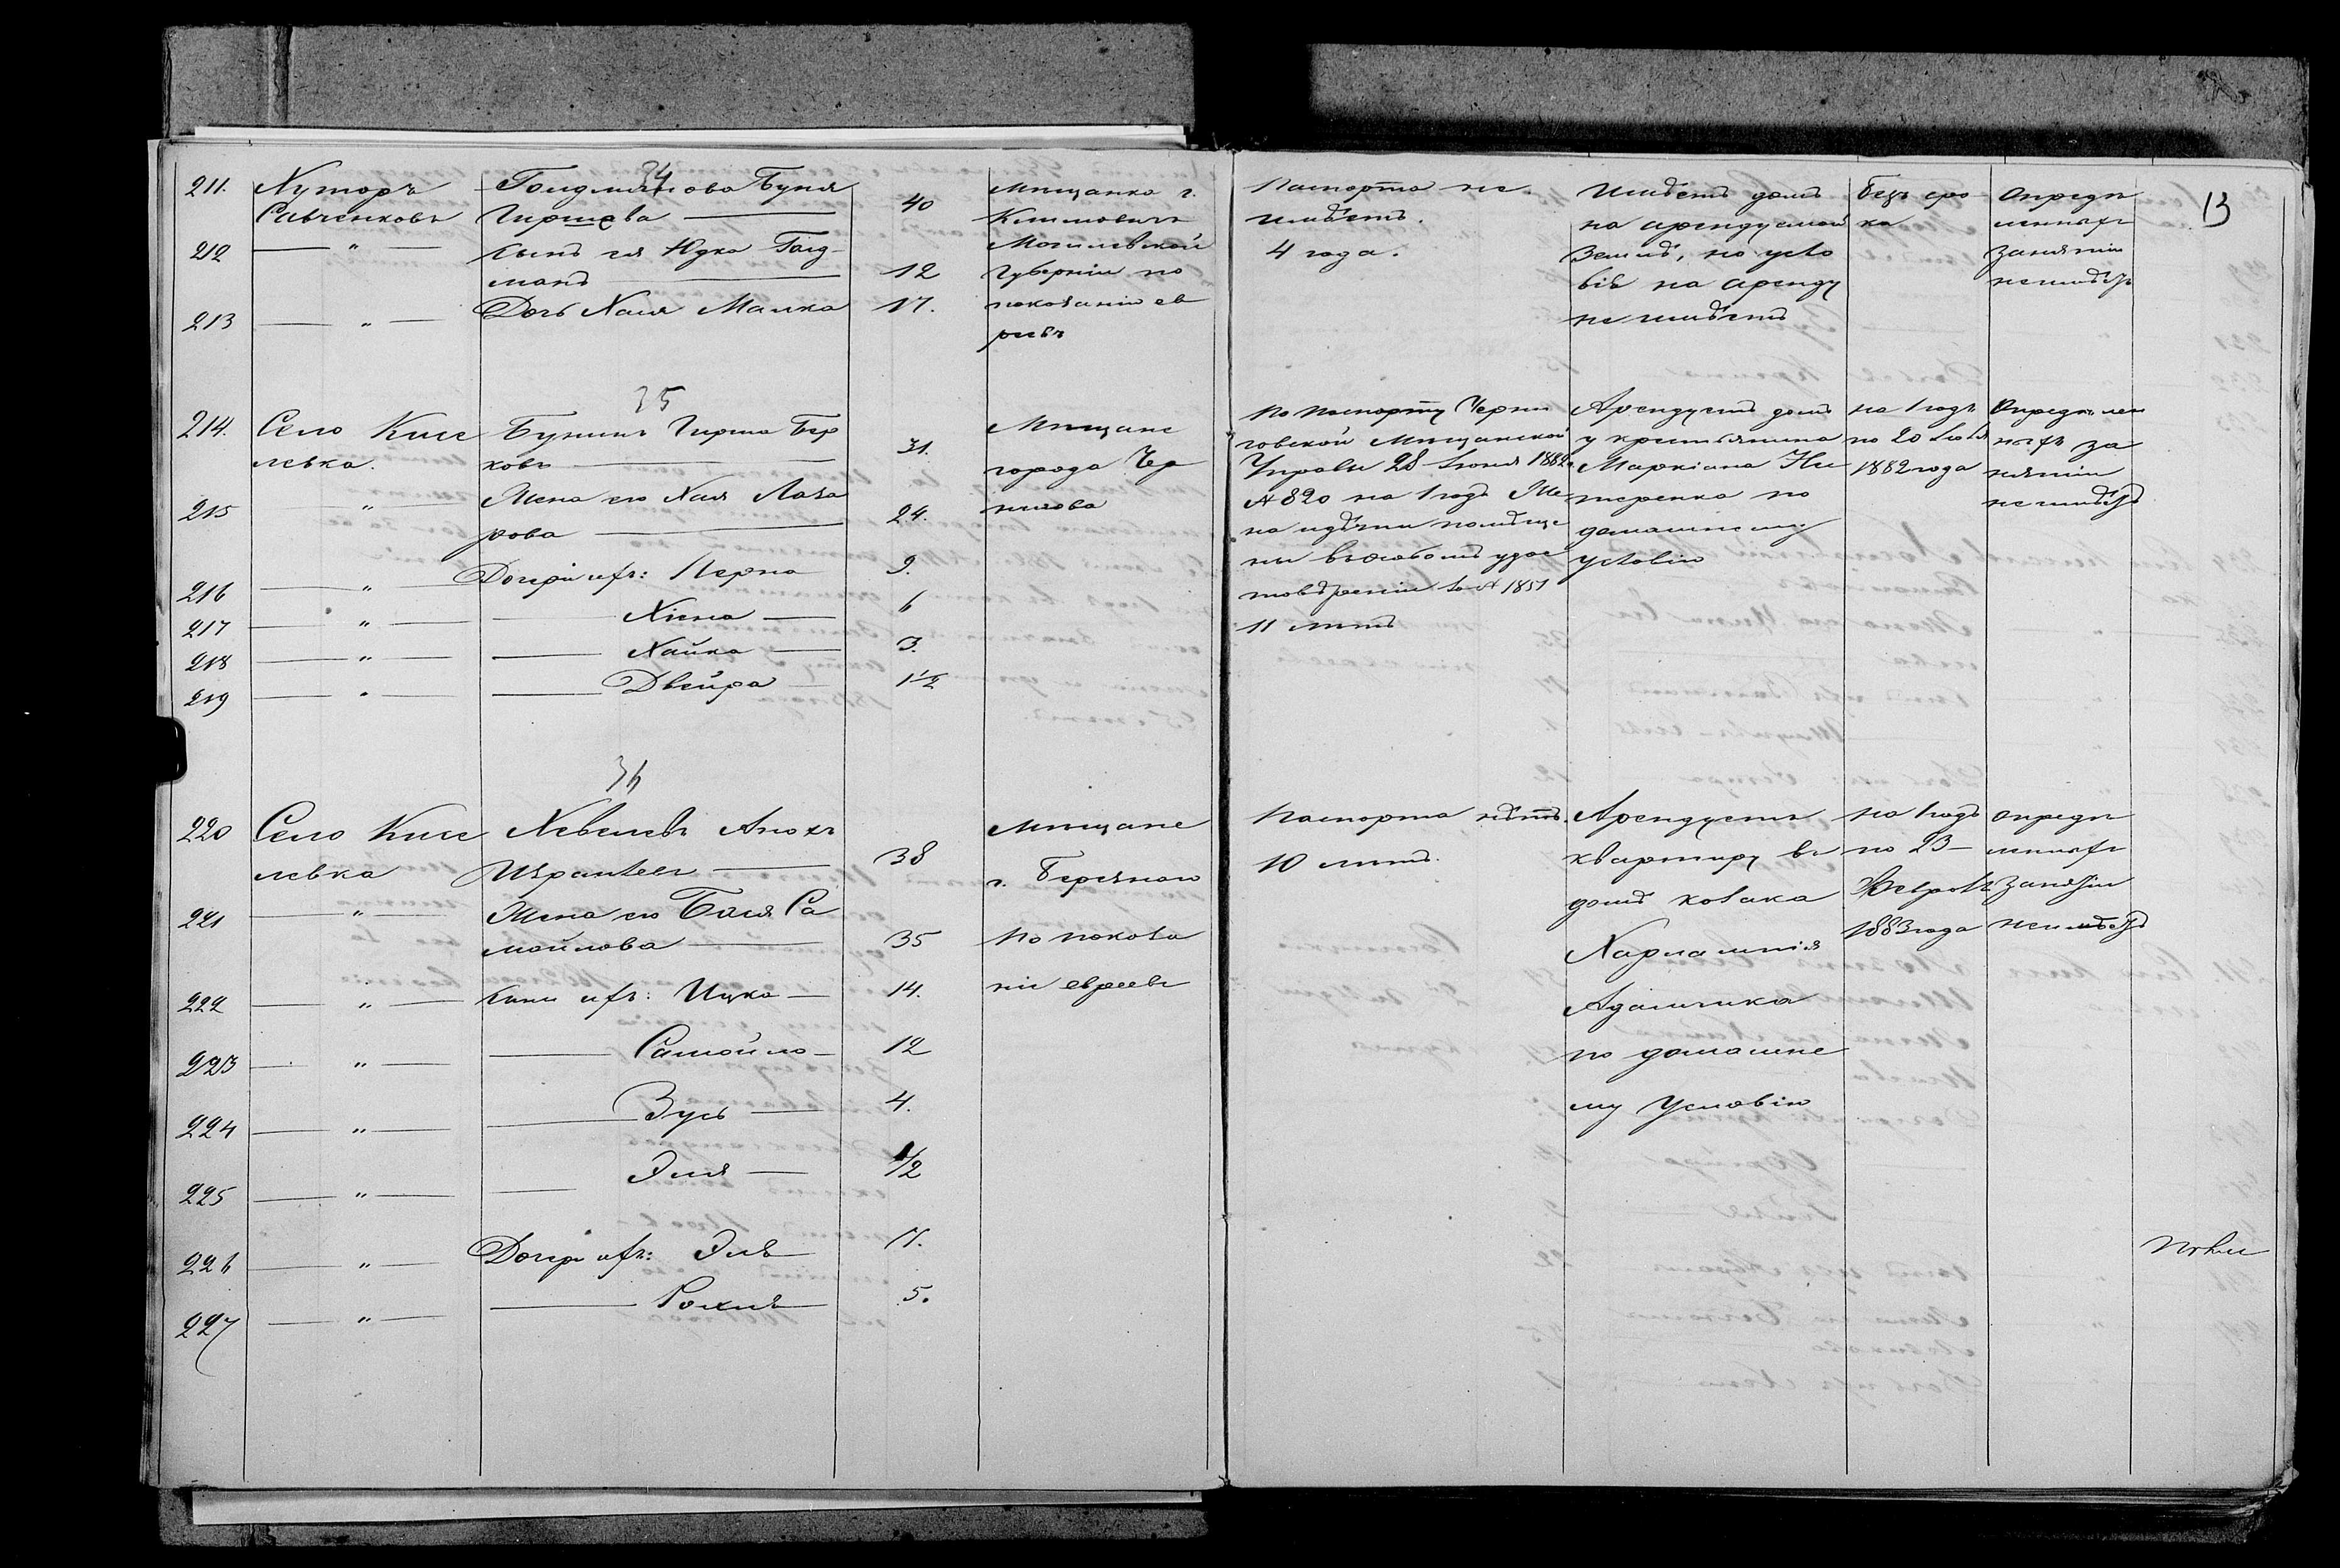 13
34
211. Хуторъ Савченковъ
Голдманова Буня
Гиршева
40
Мѣщанка г.
Климовичъ
Могилевской
Губерніи по
показанію ев
реевъ
Паспорта не
имѣетъ.
4 года.
Имѣетъ домъ
на арендуемой
землѣ, но усло
вія на аренду
не имѣетъ
Безъ сро
ка
Опредѣ
ленныхъ
занятій
неимѣетъ
212 — " —
Сынъ ея Юдка Голд
манъ
12
213 — " — Дочь Хася Малка 17.
35
214. Село Кисе
левка.
Бунинъ Гирша Бер
ковъ
31.
Мѣщане
города Чер
нигова
По паспорту Черни
говской Мѣщанской
Управы 28 Іюня 1882
№ 820 на 1 годъ Же
на и дѣти помѣще
ны въ особомъ удос
товѣреніи за № 1851
11 лѣтъ
Арендуетъ домъ
у крестьянина
Маркіана Не
теренка по
домашнему
условію
на 1 годъ
по 20 Іюля
1882 года
Опредѣлен
ныхъ за
нятій
неимѣетъ
215 — " —
Жена его Хая Лаза
рова
24.
216 — " — Дочери ихъ: Перла 9.
217 — " — Хіена 6
218 — " — Хайка 3.
219 — " — Двейра 1 1/2
36
220 Село Кисе
левка
Хевелевъ Анохъ
Израилевъ
38
Мѣщане
г. Березнаго
по показа
нію евреевъ
Паспорта нѣтъ.
10 лѣтъ.
Арендуетъ
квартиру въ
домѣ козака
Харлампія
Адаменка
по домашне
му условію
на 1 годъ
по 23
Февраля
1883 года
опредѣ
ленныхъ
занятій
неимѣетъ
221 — " —
Жена его Бася Са
мойлова
35
222 — " — Сыны ихъ: Ицка 14.
223 — " — Самойло 12
224 — " — Зусь 4.
225 — " — Эля 1/2
226 — " — Дочери ихъ: Эля 17.
227 — " — Рохля 5.